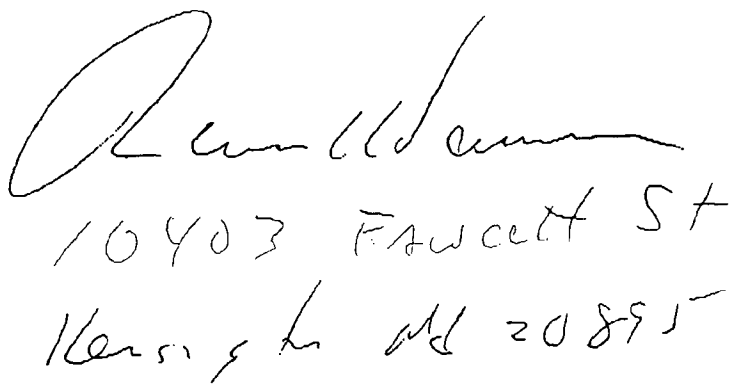 10403 Fawcett St
Kensington Md 20895